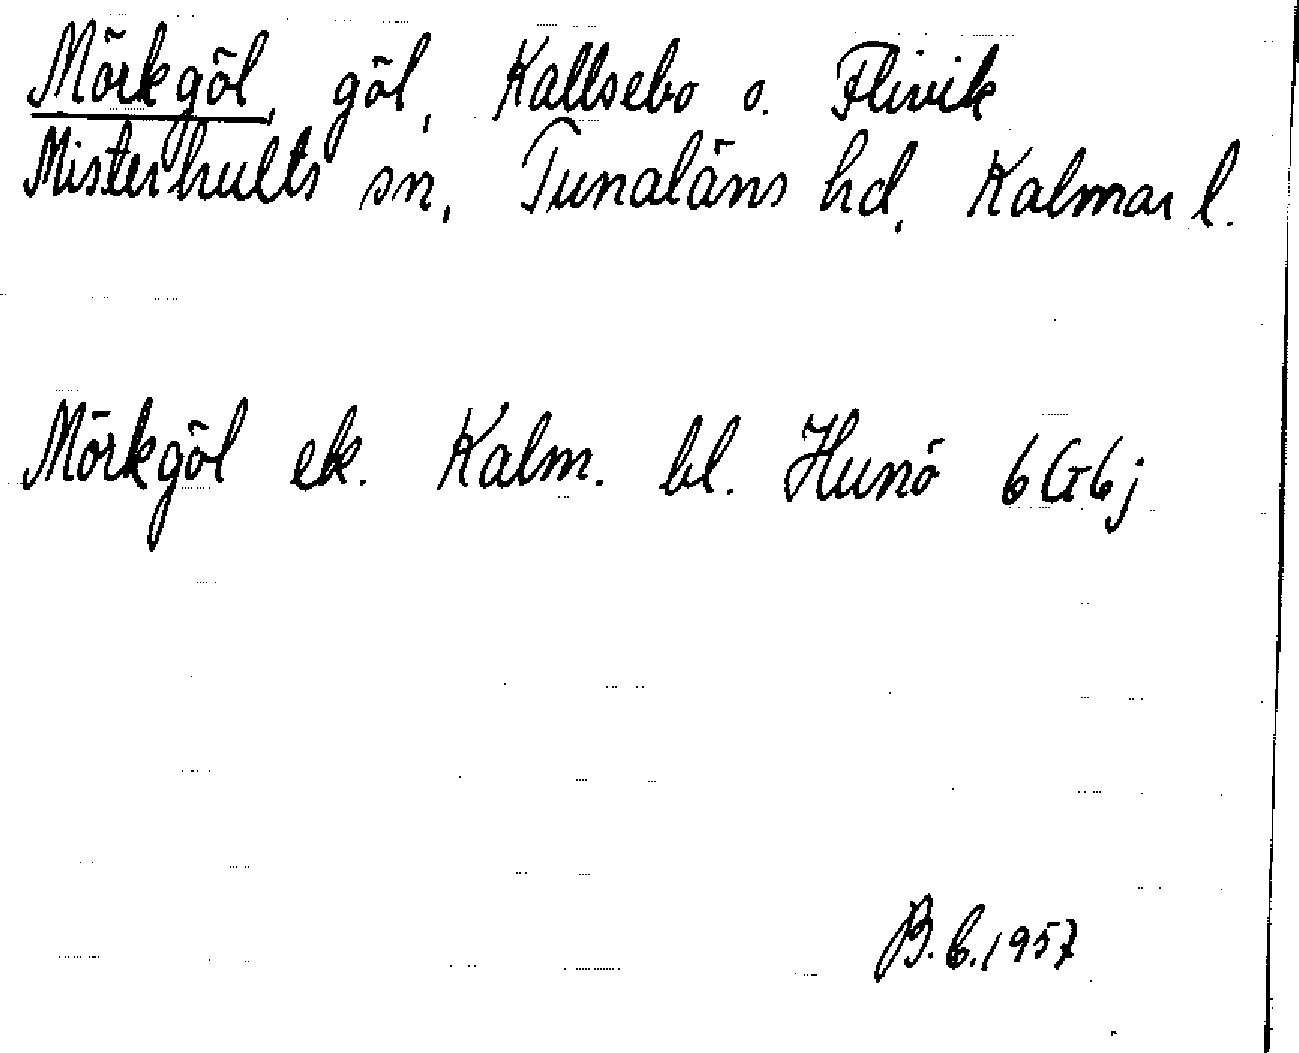 Mörkgöl, göl, Kallsebo o. Flivik
Misterhults sn, Tunaläns hd, Kalmar l.
Mörkgöl ek. Kalm. bl. Hunö 6G6j
B.b.1957